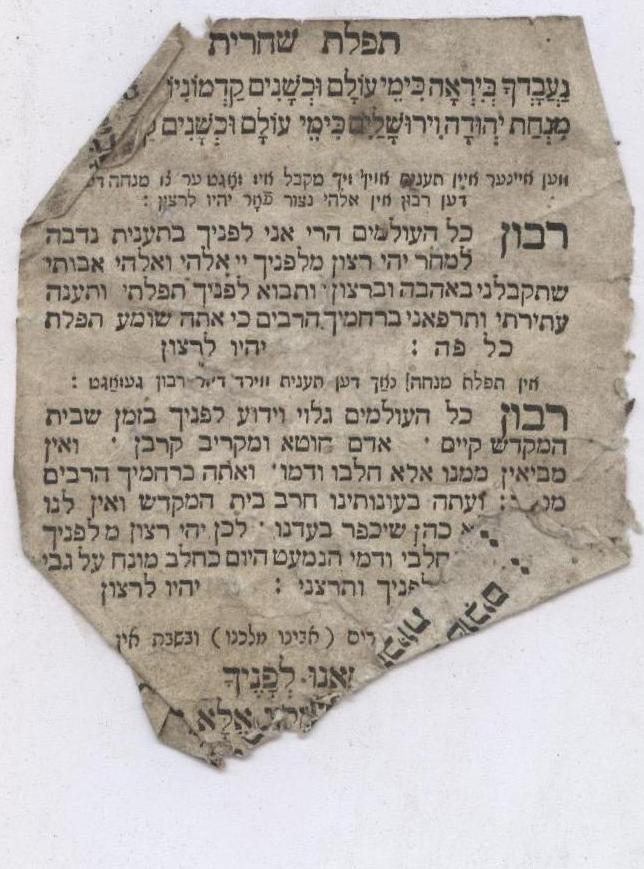 תפלת שחרית
נַעֲבָדְךָ בְּיִרְאָה כִּימֵי עוֹלָם וּכְשָׁנִים קַדְמוֹנִיּוֹ
מִנְחַת יְהוּדָה וִירוּשָׁלַיִם כִּימֵי עוֹלָם וּכְשָׁנִים
ווען איינער איין תענית אויף זיך מקבל איז זאגט ער צו מנחה
דען רבון אין אלהי נצור פאר יהיו לרצון :
רבון כל העולמים הרי אני לפניך בתענית נדבה
למחר יהי רצון מלפניך יי אלהי ואלהי אבותי
שתקבלני באהבה וברצון ותבוא לפניך תפלתי ותענה
עתירתי ותרפאני ברחמיך הרבים כי אתה שומע תפלת
כל פה : יהיו לרצון
אין תפלת מנחה נאך דען תענית ווירד דיזר רבון געזאגט :
רבון כל העולמים גלוי וידוע לפניך בזמן שבית
המקדש קיים · אדם חוטא ומקריב קרבן · ואין
מביאין ממנו אלא חלבו ודמו · ואתה ברחמיך הרבים
: ועתה בעונותינו חרב בית המקדש ואין לנו
כהן שיכפר בעדנו · לכן יהי רצון מלפניך
חלבי ודמי הנמעט היום כחלב מונח על גבי
לפניך ותרצני : יהיו לרצון
(אבינו מלכנו) ובשבת אין
לְפָנֶיךָ
אֶלָּא